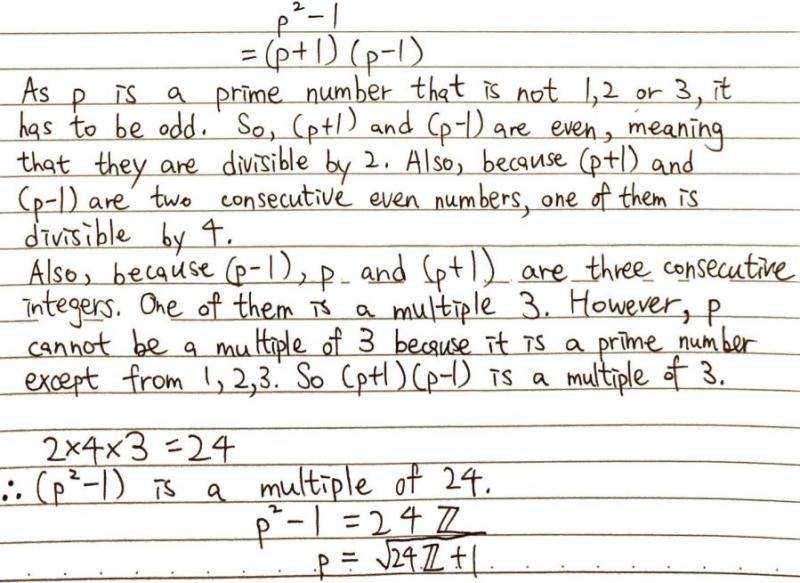 p²-1
=(p+1)(p-1)
As p is a prime number that is not 1,2 or 3, it
has to be odd. So, (p+1) and (p-1) are even, meaning
that they are divisible by 2. Also, because (p+1) and
(p-1) are two consecutive even numbers, one of them is
divisible by 4.
Also, because (p-1), p and (p+1) are three consecutive
integers. One of them is a multiple 3. However, p
cannot be a multiple of 3 because it is a prime number
except from 1,2,3. So (p+1)(p-1) is a multiple of 3.
2×4×3=24
∴ (p²-1) is a multiple of 24.
p²-1=24ℤ
p=√24ℤ+1